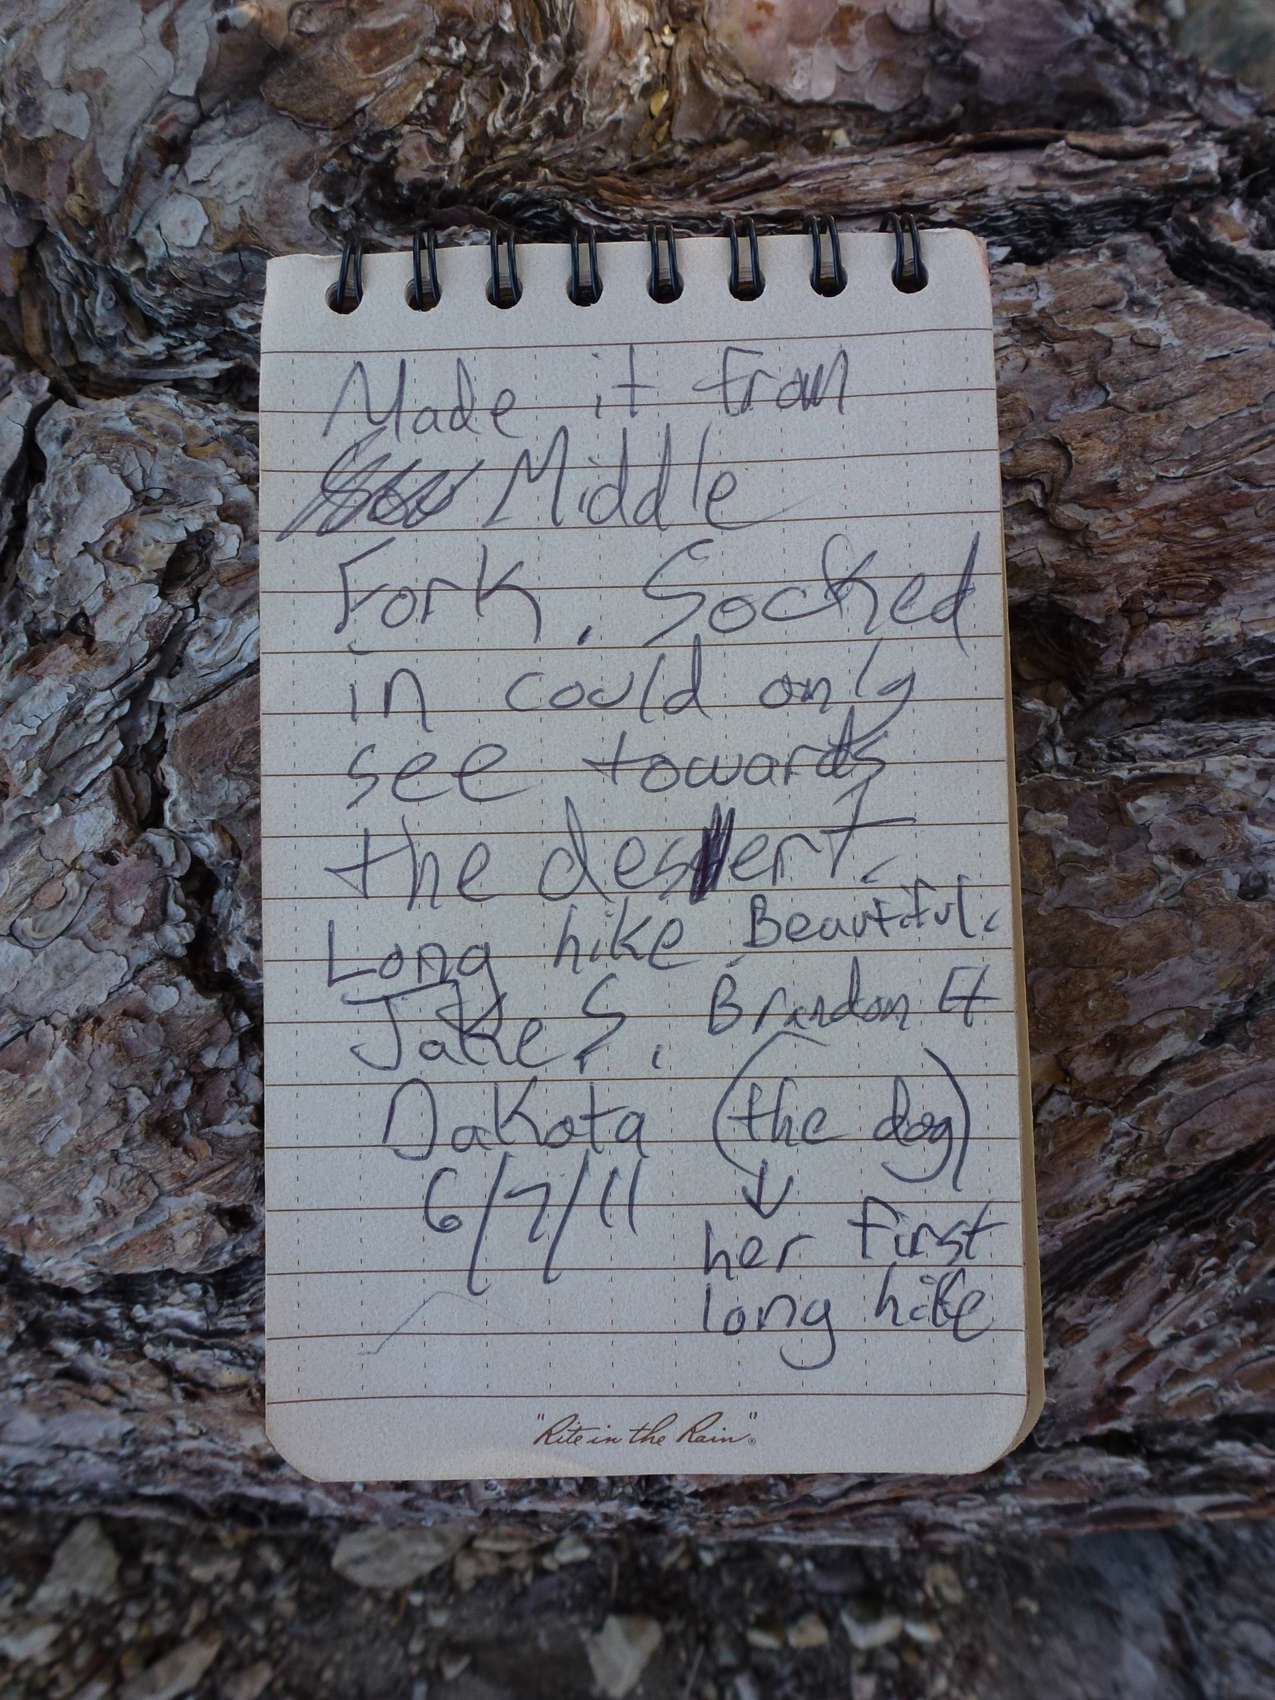 Made it from
Middle
Fork. Socked
in could only
see towards
the desert.
Long hike. Beautiful.
Jake S. Brandon H
Dakota (the dog)
6/7/11 ↓
her first
long hike
"Rite in the Rain"®